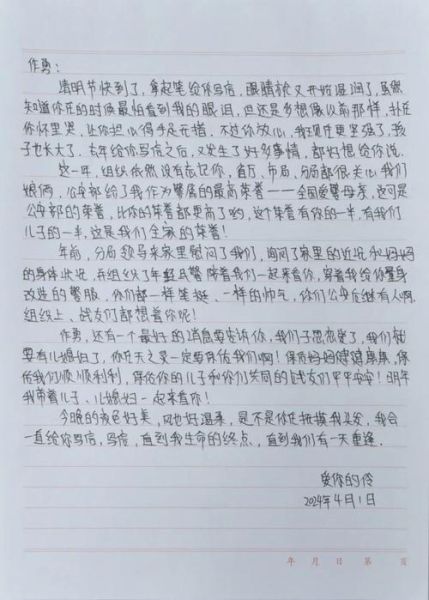 作勇：
清明节快到了，拿起笔给你写信，眼睛就又开始湿润了，虽然
知道你在的时候最怕看到我的眼泪，但还是多想像以前那样，扑在
你怀里哭，让你担心得手足无措。不过你放心，我现在更坚强了，孩
子也长大了。去年给你写信之后，又发生了好多事情，都好想给你说。
这一年，组织依然没有忘记你，省厅、市局、分局都很关心我们
娘俩，公安部给了我作为警属的最高荣誉——全国爱警母亲，这可是
公安部的荣誉，比你的荣誉都要高了哟，这个荣誉有你的一半，有我们
儿子的一半，这是我们全家的荣誉！
年前，分局领导来家里慰问了我们，询问了家里的近况和妈妈
的身体状况，并组织了年轻民警陪着我们一起来看你，穿着我给你量身
改造的警服，你们都一样笔挺、一样的帅气，你们公安后继有人啊，
组织上、战友们都想着你呢！
作勇，还有一个最好的消息要告诉你，我们子恩恋爱了，我们就
要有儿媳妇了，你在天之灵一定要保佑我们啊！保佑妈妈健健康康，保
佑我们顺顺利利，保佑你的儿子和你们共同的战友们平平安安！明年
我带着儿子、儿媳妇一起来看你！
今晚的夜色好美，风也好温柔，是不是你在抚摸我头发，我会
一直给你写信，写信，直到我生命的终点，直到我们有一天重逢。
爱你的伶
2024年4月1日
年 月 日 第 页